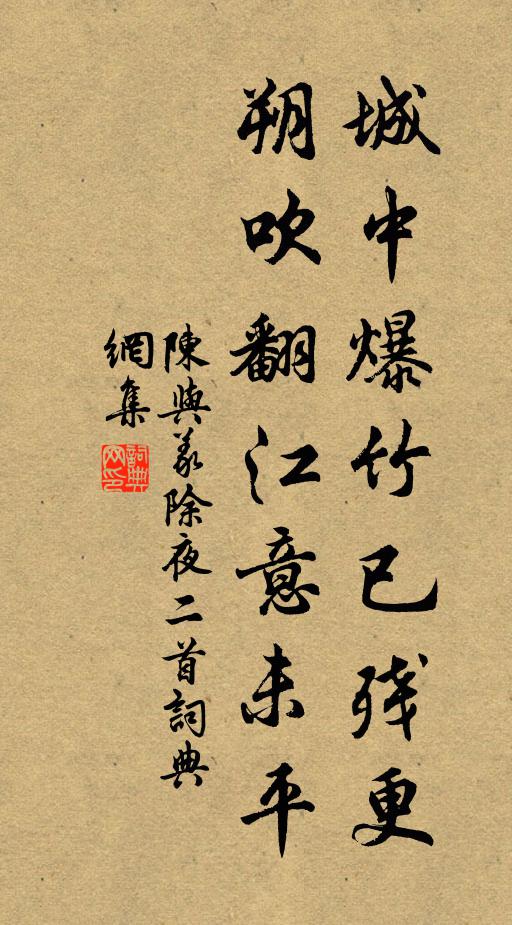 城中爆竹已残更
朔吹翻江意未平
陳與義除夜二首詞典
網集
詞典
网印